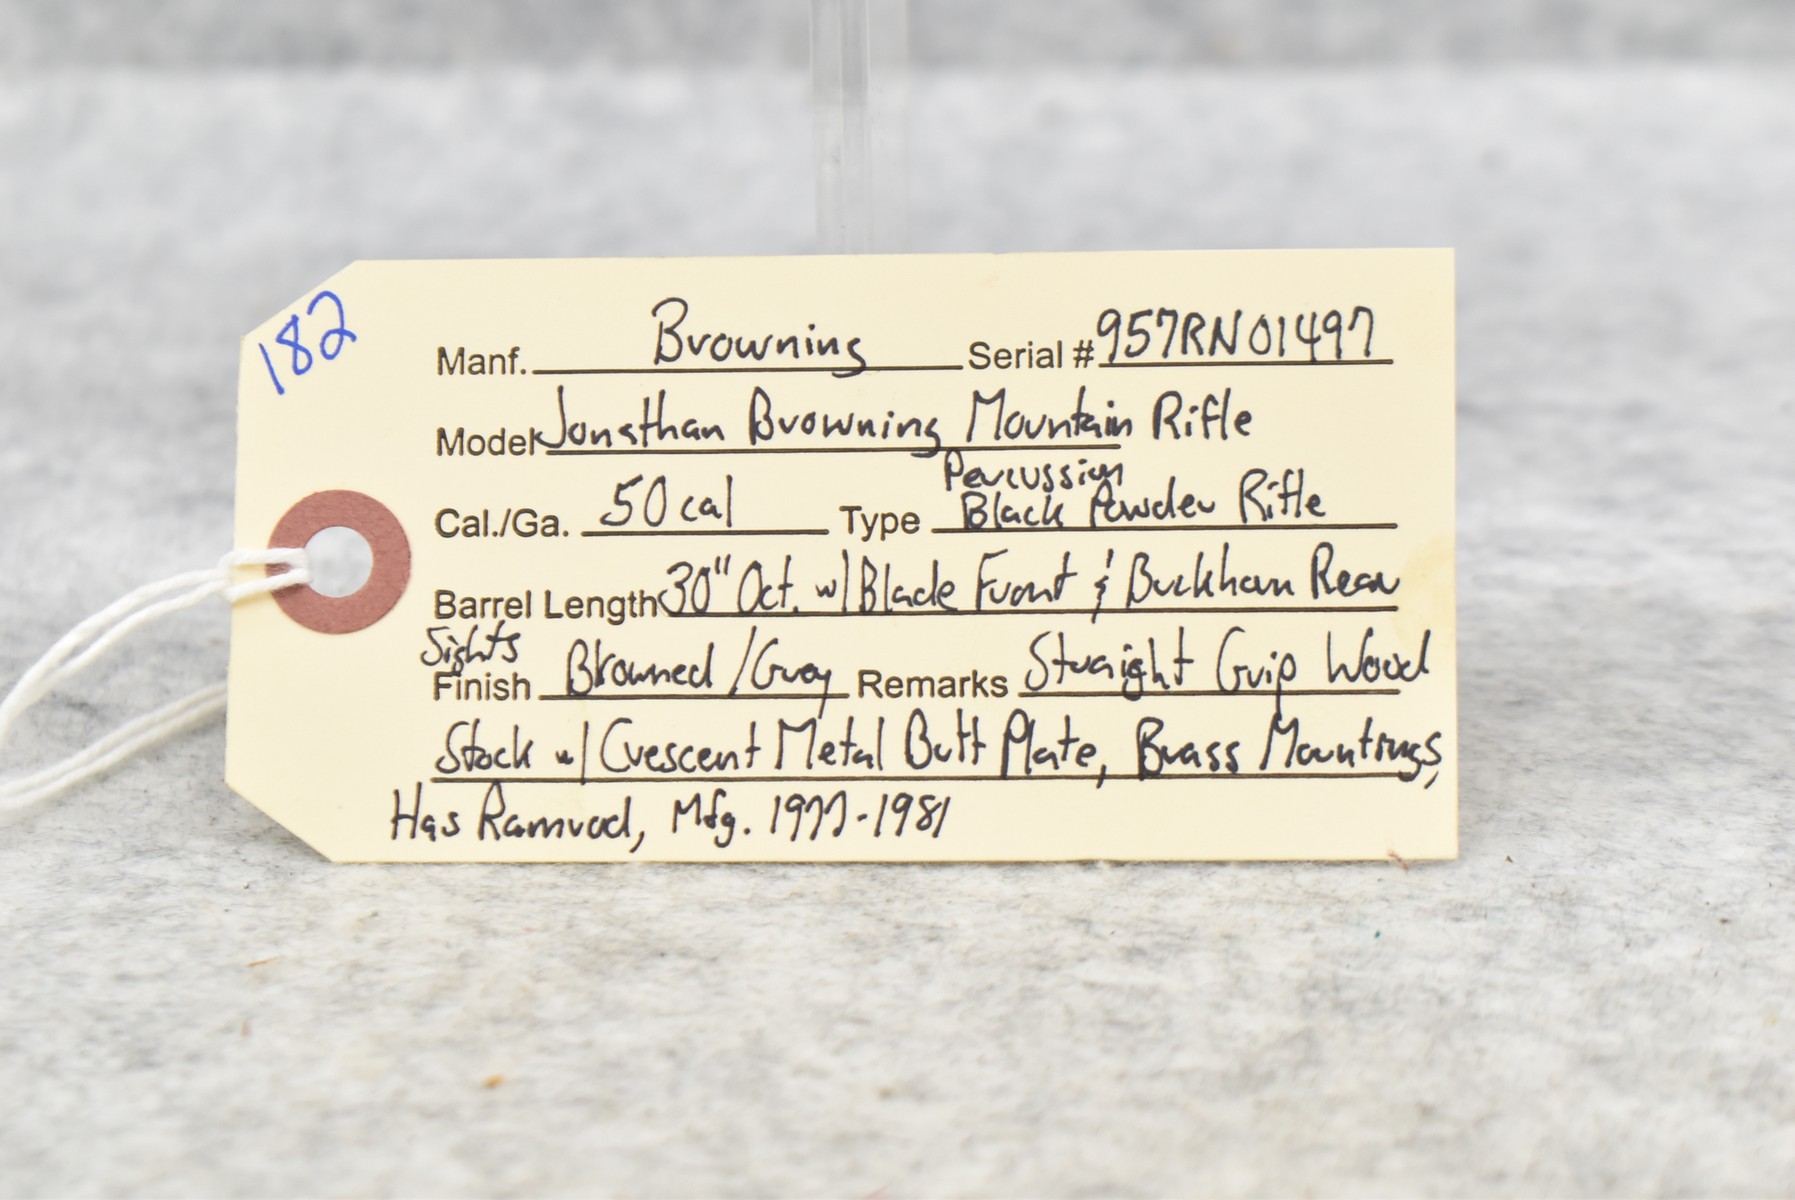 182
Manf. Browning Serial # 957RN01497
Model Jonathan Browning Mountain Rifle
Percussion
Cal./Ga. 50 cal Type Black Powder Rifle
Barrel Length 30" Oct. w/ Blade Front & Buckhorn Rear
Sights
Finish Browned / Gray Remarks Straight Grip Wood
Stock w/ Crescent Metal Butt Plate, Brass Mountings,
Has Ramrod, Mfg. 1977-1981